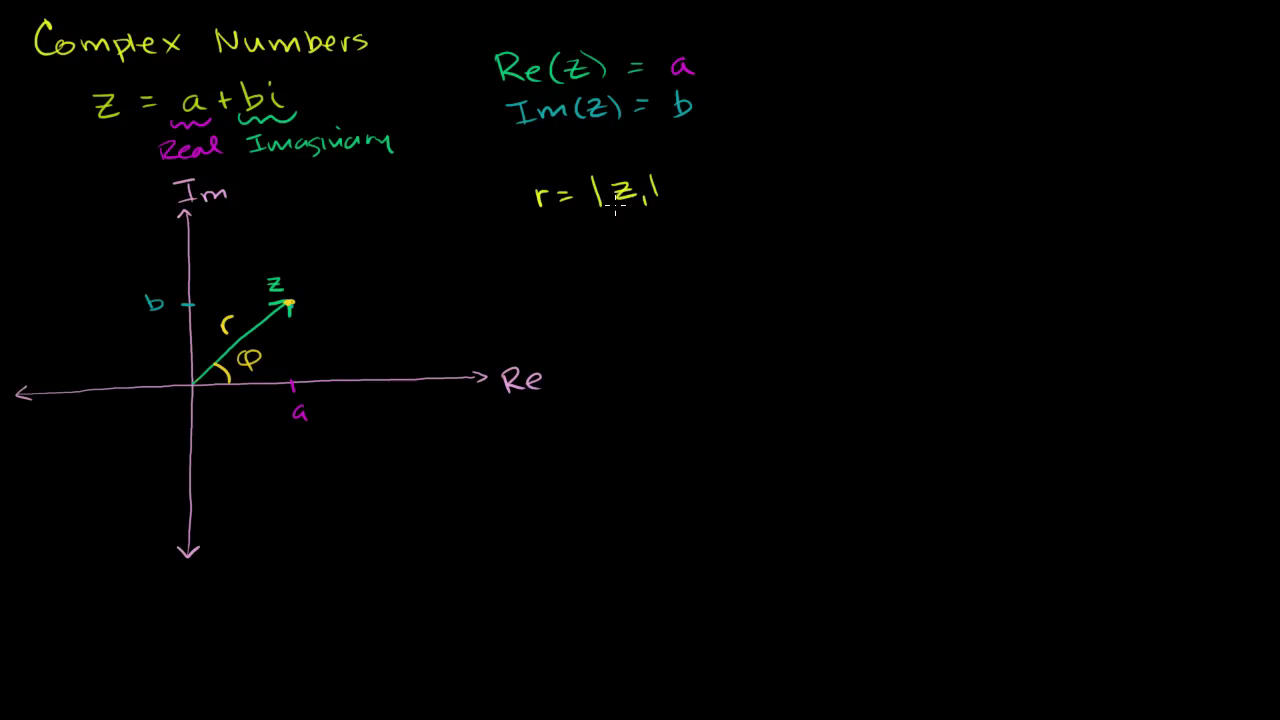 Complex Numbers
z = a + bi
Real Imaginary
Re(z) = a
Im(z) = b
r = |z₁|
Im
z
b
r
φ
Re
a